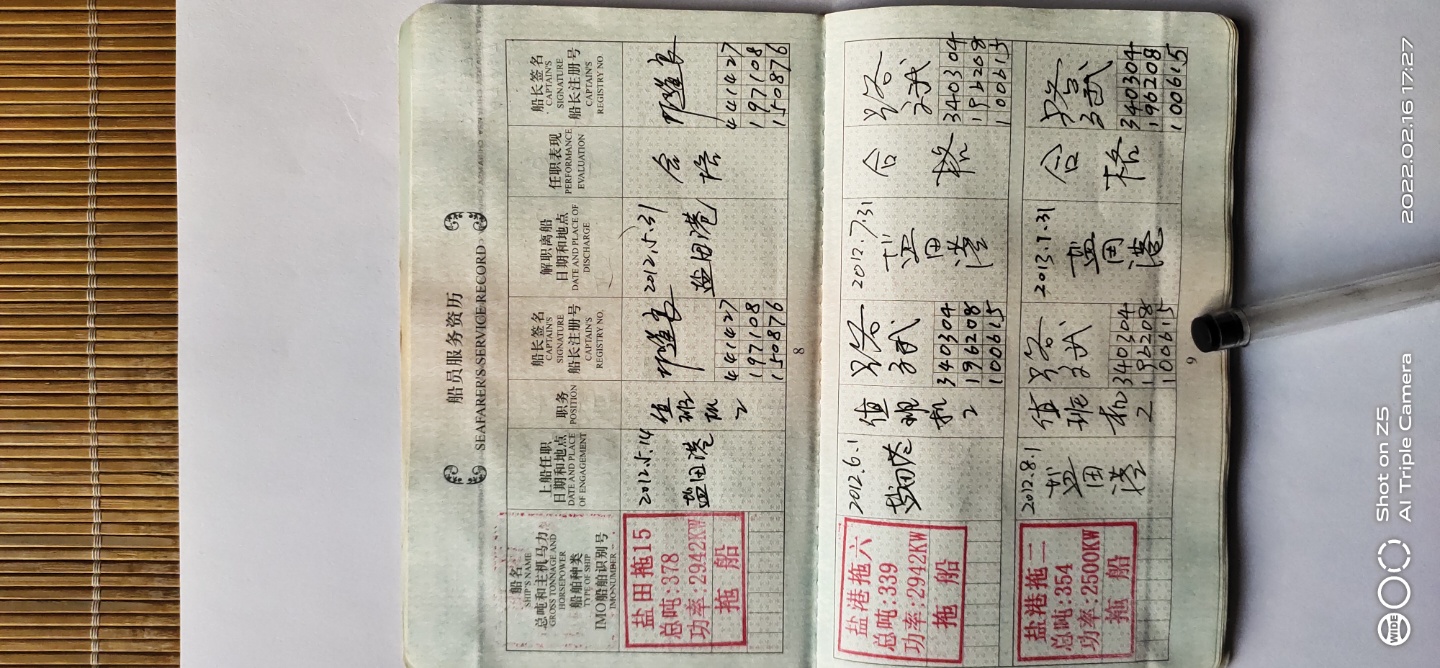 船员服务资历
SEAFARER'S SERVICE RECORD
船名
SHIP'S NAME
总吨和主机马力
GROSS TONNAGE AND
HORSEPOWER
船舶种类
TYPE OF SHIP
IMO船舶识别号
IMO NUMBER
上船任职
日期和地点
DATE AND PLACE
OF ENGAGEMENT
职务
POSITION
船长签名
CAPTAIN'S
SIGNATURE
船长注册号
CAPTAIN'S
REGISTRY NO.
解职离船
日期和地点
DATE AND PLACE OF
DISCHARGE
任职表现
PERFORMANCE
EVALUATION
船长签名
CAPTAIN'S
SIGNATURE
船长注册号
CAPTAIN'S
REGISTRY NO
盐田拖15
总吨:378
功率:2942KW
拖 船
2012.5.14
盐田港
值
班
机
2
441427
197108
150876
2012.5.31
盐田港
合
格
441427
197108
150876
8
盐港拖六
总吨:339
功率:2942KW
拖 船
2012.6.1
盐田港
值
班
机
2
340304
196208
100615
2012.7.31
盐
田
港
合
格
340304
196208
100615
盐港拖二
总吨:354
功率:2500KW
拖 船
2012.8.1
盐
田
港
值
班
机
2
340304
196208
100615
2013.1.31
盐
田
港
合
格
340304
196208
100615
9
WIDE
Shot on Z5
AI Triple Camera
2022.02.16 17:27